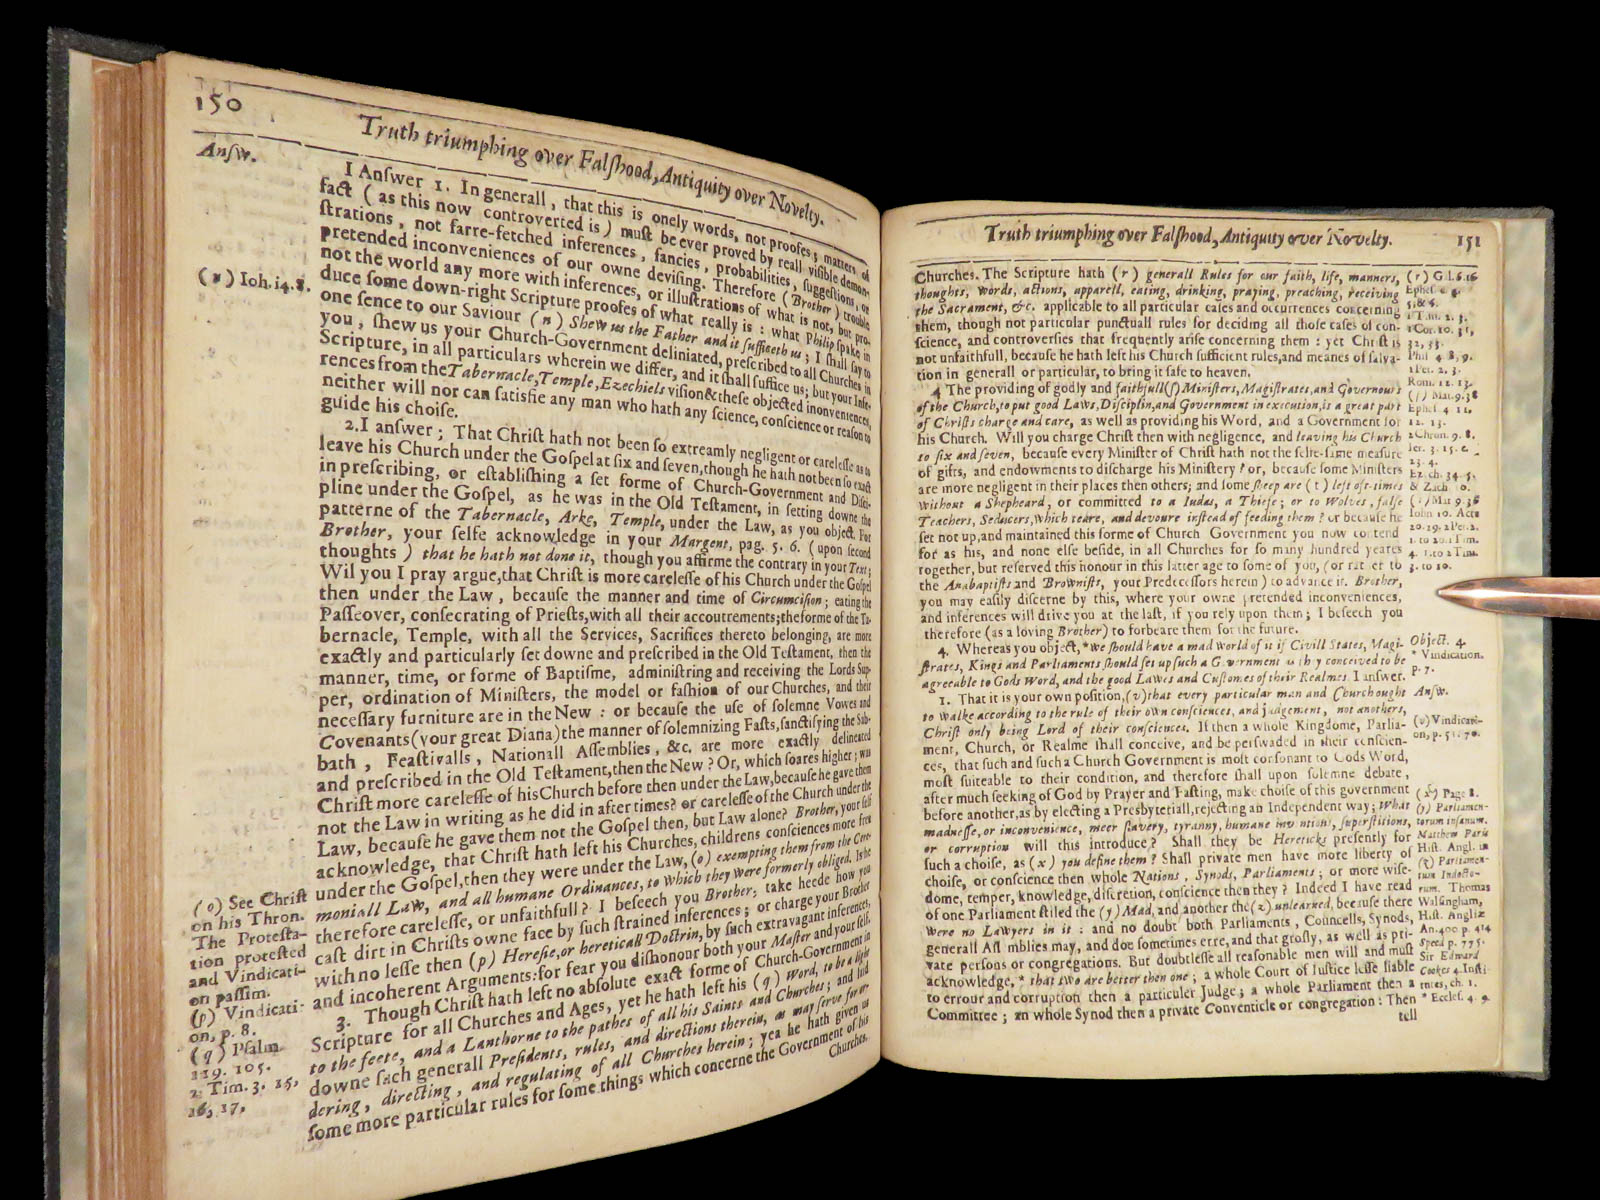 150
Truth triumphing over Falſhood, Antiquity over Novelty.
Anſw.
I Anſwer 1. In generall, that this is onely words, not proofes; matters of
fact (as this now controverted is) muſt be ever proved by reall viſible demon-
ſtrations, not farre-fetched inferences, fancies, probabilities, ſuggeſtions, or
pretended inconveniences of our owne deviſing. Therefore (Brother) trouble
not the world any more with inferences, or illuſtrations of what is not, but pro-
duce ſome down-right Scripture proofes of what really is: what Philip ſpake in
one ſence to our Saviour (n) Shew us the Father and it ſufficeth us; I ſhall ſay to
(n) Ioh. 14. 8.
you, ſhew us your Church-Government deliniated, preſcribed to all Churches in
Scripture, in all particulars wherein we differ, and it ſhall ſuffice us; but your Infe-
rences from the Tabernacle, Temple, Ezechiels viſion & theſe objected inonveniences,
neither will nor can ſatisfie any man who hath any ſcience, conſcience or reaſon to
guide his choiſe.
2. I anſwer; That Chriſt hath not been ſo extreamly negligent or careleſſe as to
leave his Church under the Goſpel at ſix and ſeven, though he hath not been ſo exact
in preſcribing, or eſtabliſhing a ſet forme of Church-Government and Diſci-
pline under the Goſpel, as he was in the Old Teſtament, in ſetting downe the
patterne of the Tabernacle, Arke, Temple, under the Law, as you object. For
Brother, your ſelfe acknowledge in your Margent, pag. 5. 6. (upon ſecond
thoughts) that he hath not done it, though you affirme the contrary in your Text;
Wil you I pray argue, that Chriſt is more careleſſe of his Church under the Goſpel
then under the Law, because the manner and time of Circumciſion; eating the
Paſſeover, conſecrating of Prieſts, with all their accoutrements; the forme of the Ta-
bernacle, Temple, with all the Services, Sacrifices thereto belonging, are more
exactly and particularly ſet downe and preſcribed in the Old Teſtament, then the
manner, time, or forme of Baptiſme, adminiſtring and receiving the Lords Sup-
per, ordination of Miniſters, the model or faſhion of our Churches, and their
neceſſary furniture are in the New: or becauſe the uſe of ſolemne Vowes and
Covenants (your great Diana) the manner of ſolemnizing Faſts, ſanctifying the Sab-
bath, Feaſtivalls, Nationall Aſſemblies, &c. are more exactly delineated
and preſcribed in the Old Teſtament, then the New? Or, which ſoares higher; was
Chriſt more careleſſe of his Church before then under the Law, becauſe he gave them
not the Law in writing as he did in after times? or careleſſe of the Church under the
Law, becauſe he gave them not the Goſpel then, but Law alone? Brother, your ſelf
acknowledge, that Chriſt hath left his Churches, childrens conſciences more free
under the Goſpel, then they were under the Law, (o) exempting them from the Cere-
moniall Law, and all humane Ordinances, to which they were formerly obliged. Is he
therefore careleſſe, or unfaithfull? I beſeech you Brother, take heede how you
caſt dirt in Chriſts owne face by ſuch ſtrained inferences; or charge your Brother
with no leſſe then (p) Hereſie, or hereticall Doctrin, by ſuch extravagant inferences,
and incoherent Arguments: for fear you diſhonour both your Maſter and your ſelf.
(o) See Chriſt
on his Thron.
The Proteſta-
tion proteſted
and Vindicati-
on paſſim.
(p) Vindicati-
on, p. 8.
(q) Pſalm.
119. 105.
2. Tim. 3. 15,
16, 17,
3. Though Chriſt hath left no abſolute exact forme of Church-Government in
Scripture for all Churches and Ages, yet he hath left his (q) Word, to be a light
to the feete, and a Lanthorne to the pathes of all his Saints and Churches; and laid
downe ſuch generall Preſidents, rules, and directions therein, as may ſerve for or-
dering, directing, and regulating of all Churches herein; yea he hath given us
ſome more particular rules for ſome things which concerne the Government of his
Churches.
Truth triumphing over Falſhood, Antiquity over Novelty.
151
Churches. The Scripture hath (r) generall Rules for our faith, life, manners,
thoughts, words, actions, apparell, eating, drinking, praying, preaching, receiving
the Sacrament, &c. applicable to all particular caſes and occurrences concerning
them, though not particular punctuall rules for deciding all thoſe caſes of con-
ſcience, and controverſies that frequently ariſe concerning them: yet Chriſt is
not unfaithfull, becauſe he hath left his Church ſufficient rules, and meanes of ſalva-
tion in generall or particular, to bring it ſafe to heaven.
4 The providing of godly and faithfull (ſ) Miniſters, Magiſtrates, and Governours
of the Church, to put good Laws, Diſciplin, and Government in execution, is a great part
of Chriſts charge and care, as well as providing his Word, and a Government for
his Church. Will you charge Chriſt then with negligence, and leaving his Church
to ſix and ſeven, becauſe every Miniſter of Chriſt hath not the ſelfe-ſame meaſure
of gifts, and endowments to diſcharge his Miniſtery? or, becauſe ſome Miniſters
are more negligent in their places then others; and ſome ſheep are (t) left oft-times
without a Shepheard, or committed to a Iudas, a Thiefe; or to Wolves, falſe
Teachers, Seducers, which teare, and devoure inſtead of feeding them? or becauſe he
ſet not up, and maintained this forme of Church Government you now contend
for as his, and none elſe beſide, in all Churches for ſo many hundred yeares
together, but reſerved this honour in this latter age to ſome of you, (or rather to
the Anabaptiſts and Browniſts, your Predeceſſors herein) to advance it. Brother,
you may eaſily diſcerne by this, where your owne pretended inconveniences,
and inferences will drive you at the laſt, if you rely upon them; I beſeech you
therefore (as a loving Brother) to forbeare them for the future.
(r) Gal. 6. 16
Epheſ. c. 4.
5. & 6.
1 Tim. 2. 3.
1 Cor. 10. 31,
32, 33.
Phil 4 8, 9.
1 Pet. 2. 3.
Rom. 12. 13.
(ſ) Mat. 9. 38
Epheſ. 4 11.
12. 13.
2 Chron. 9. 8.
Ier. 3. 15. c.
23. 4.
Ezech. 34. 5.
& Zach. 10.
(t) Mat 9. 36
Iohn 10. Acts
20. 29. 2 Pet. 2.
1. to 20. 1 Tim.
4. 1. to 2 Tim.
3. to 10.
4. Whereas you object, * we ſhould have a mad world of it if Civill States, Magi-
ſtrates, Kings and Parliaments ſhould ſet up ſuch a Government as they conceived to be
agreeable to Gods Word, and the good Lawes and Cuſtomes of their Realmes. I anſwer.
Object. 4
* Vindication.
p. 7.
Anſw.
1. That it is your own poſition, (v) that every particular man and Church ought
to walke according to the rule of their own conſciences, and judgement, not anothers,
Chriſt only being Lord of their conſciences. If then a whole Kingdome, Parlia-
ment, Church, or Realme ſhall conceive, and be perſwaded in their conſcien-
ces, that ſuch and ſuch a Church Government is moſt conſonant to Gods Word,
moſt ſuiteable to their condition, and therefore ſhall upon ſolemne debate,
after much ſeeking of God by Prayer and Faſting, make choiſe of this government
before another, as by electing a Presbyteriall, rejecting an Independent way; What
madneſſe, or inconvenience, meer ſlavery, tyranny, humane inventions, ſuperſtitions,
or corruption will this introduce? Shall they be Hereticks preſently for
ſuch a choiſe, as (x) you define them? Shall private men have more liberty of
choiſe, or conſcience then whole Nations, Synods, Parliaments; or more wiſe-
dome, temper, knowledge, diſcretion, conſcience then they? Indeed I have read
of one Parliament ſtiled the (y) Mad, and another the (z) unlearned, becauſe there
were no Lawyers in it: and no doubt both Parliaments, Councells, Synods,
generall Aſſemblies may, and doe ſometimes erre, and that groſly, as well as pri-
vate perſons or congregations. But doubtleſſe all reaſonable men will and muſt
acknowledge, * that two are better then one; a whole Court of Iuſtice leſſe liable
to errour and corruption then a particuler Judge; a whole Parliament then a
Committee; an whole Synod then a private Conventicle or congregation: Then
tell
(v) Vindicati-
on, p. 51. 70.
(x) Page 8.
(y) Parliamen-
torum inſanum.
Matthew Paris
Hiſt. Angl. in
(z) Parliamen-
tum Indocto-
rum. Thomas
Walſingham,
Hiſt. Angliæ
An. 400 p. 414
Speed p. 775.
Sir Edward
Cookes 4. Inſti-
tutes, ch. 1.
* Eccleſ. 4. 9.